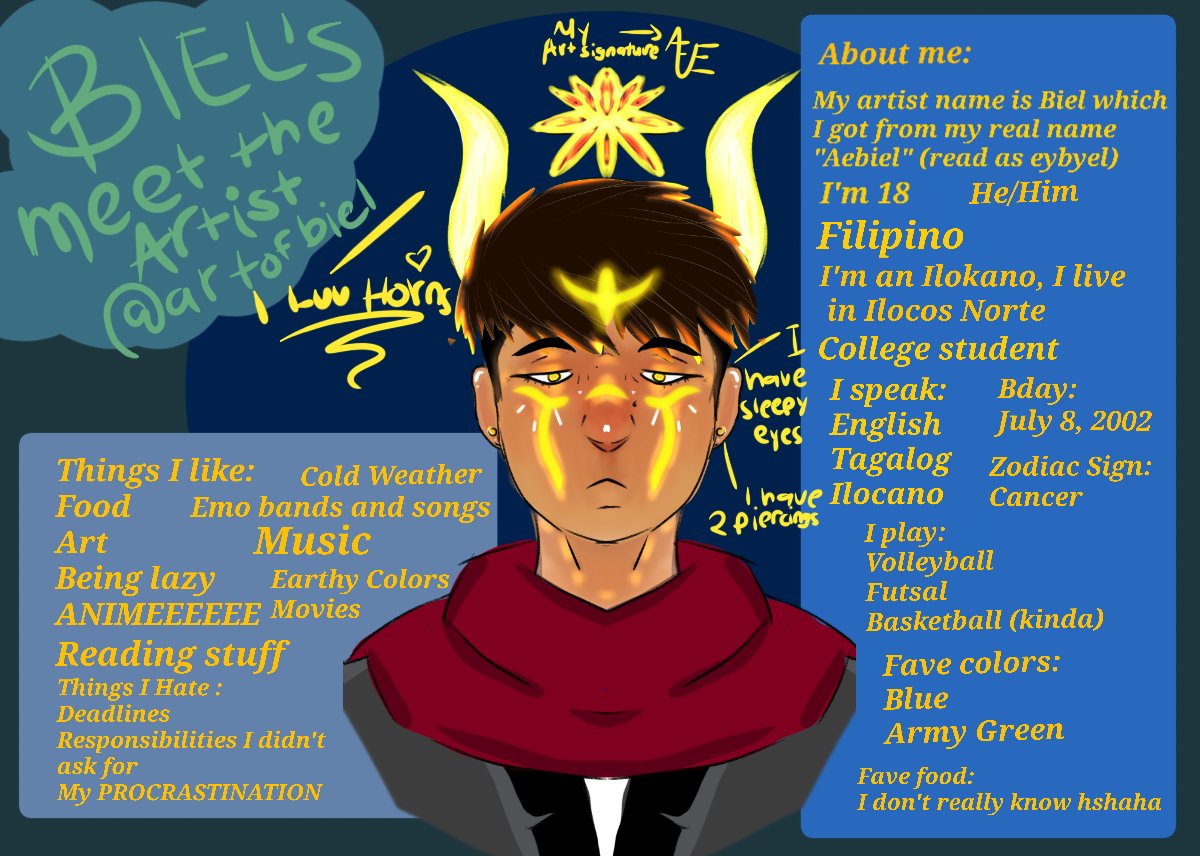 BIEL'S
meet the
Artist
@artofbiel
My
Art signature → AE
I Luv Horns
I
have
sleepy
eyes
I have
2 piercings
Things I like:
Cold Weather
Food
Emo bands and songs
Art
Music
Being lazy
Earthy Colors
ANIMEEEEEE
Movies
Reading stuff
Things I Hate :
Deadlines
Responsibilities I didn't
ask for
My PROCRASTINATION
About me:
My artist name is Biel which
I got from my real name
"Aebiel" (read as eybyel)
I'm 18
He/Him
Filipino
I'm an Ilokano, I live
in Ilocos Norte
College student
I speak:
English
Tagalog
Ilocano
Bday:
July 8, 2002
Zodiac Sign:
Cancer
I play:
Volleyball
Futsal
Basketball (kinda)
Fave colors:
Blue
Army Green
Fave food:
I don't really know hshaha